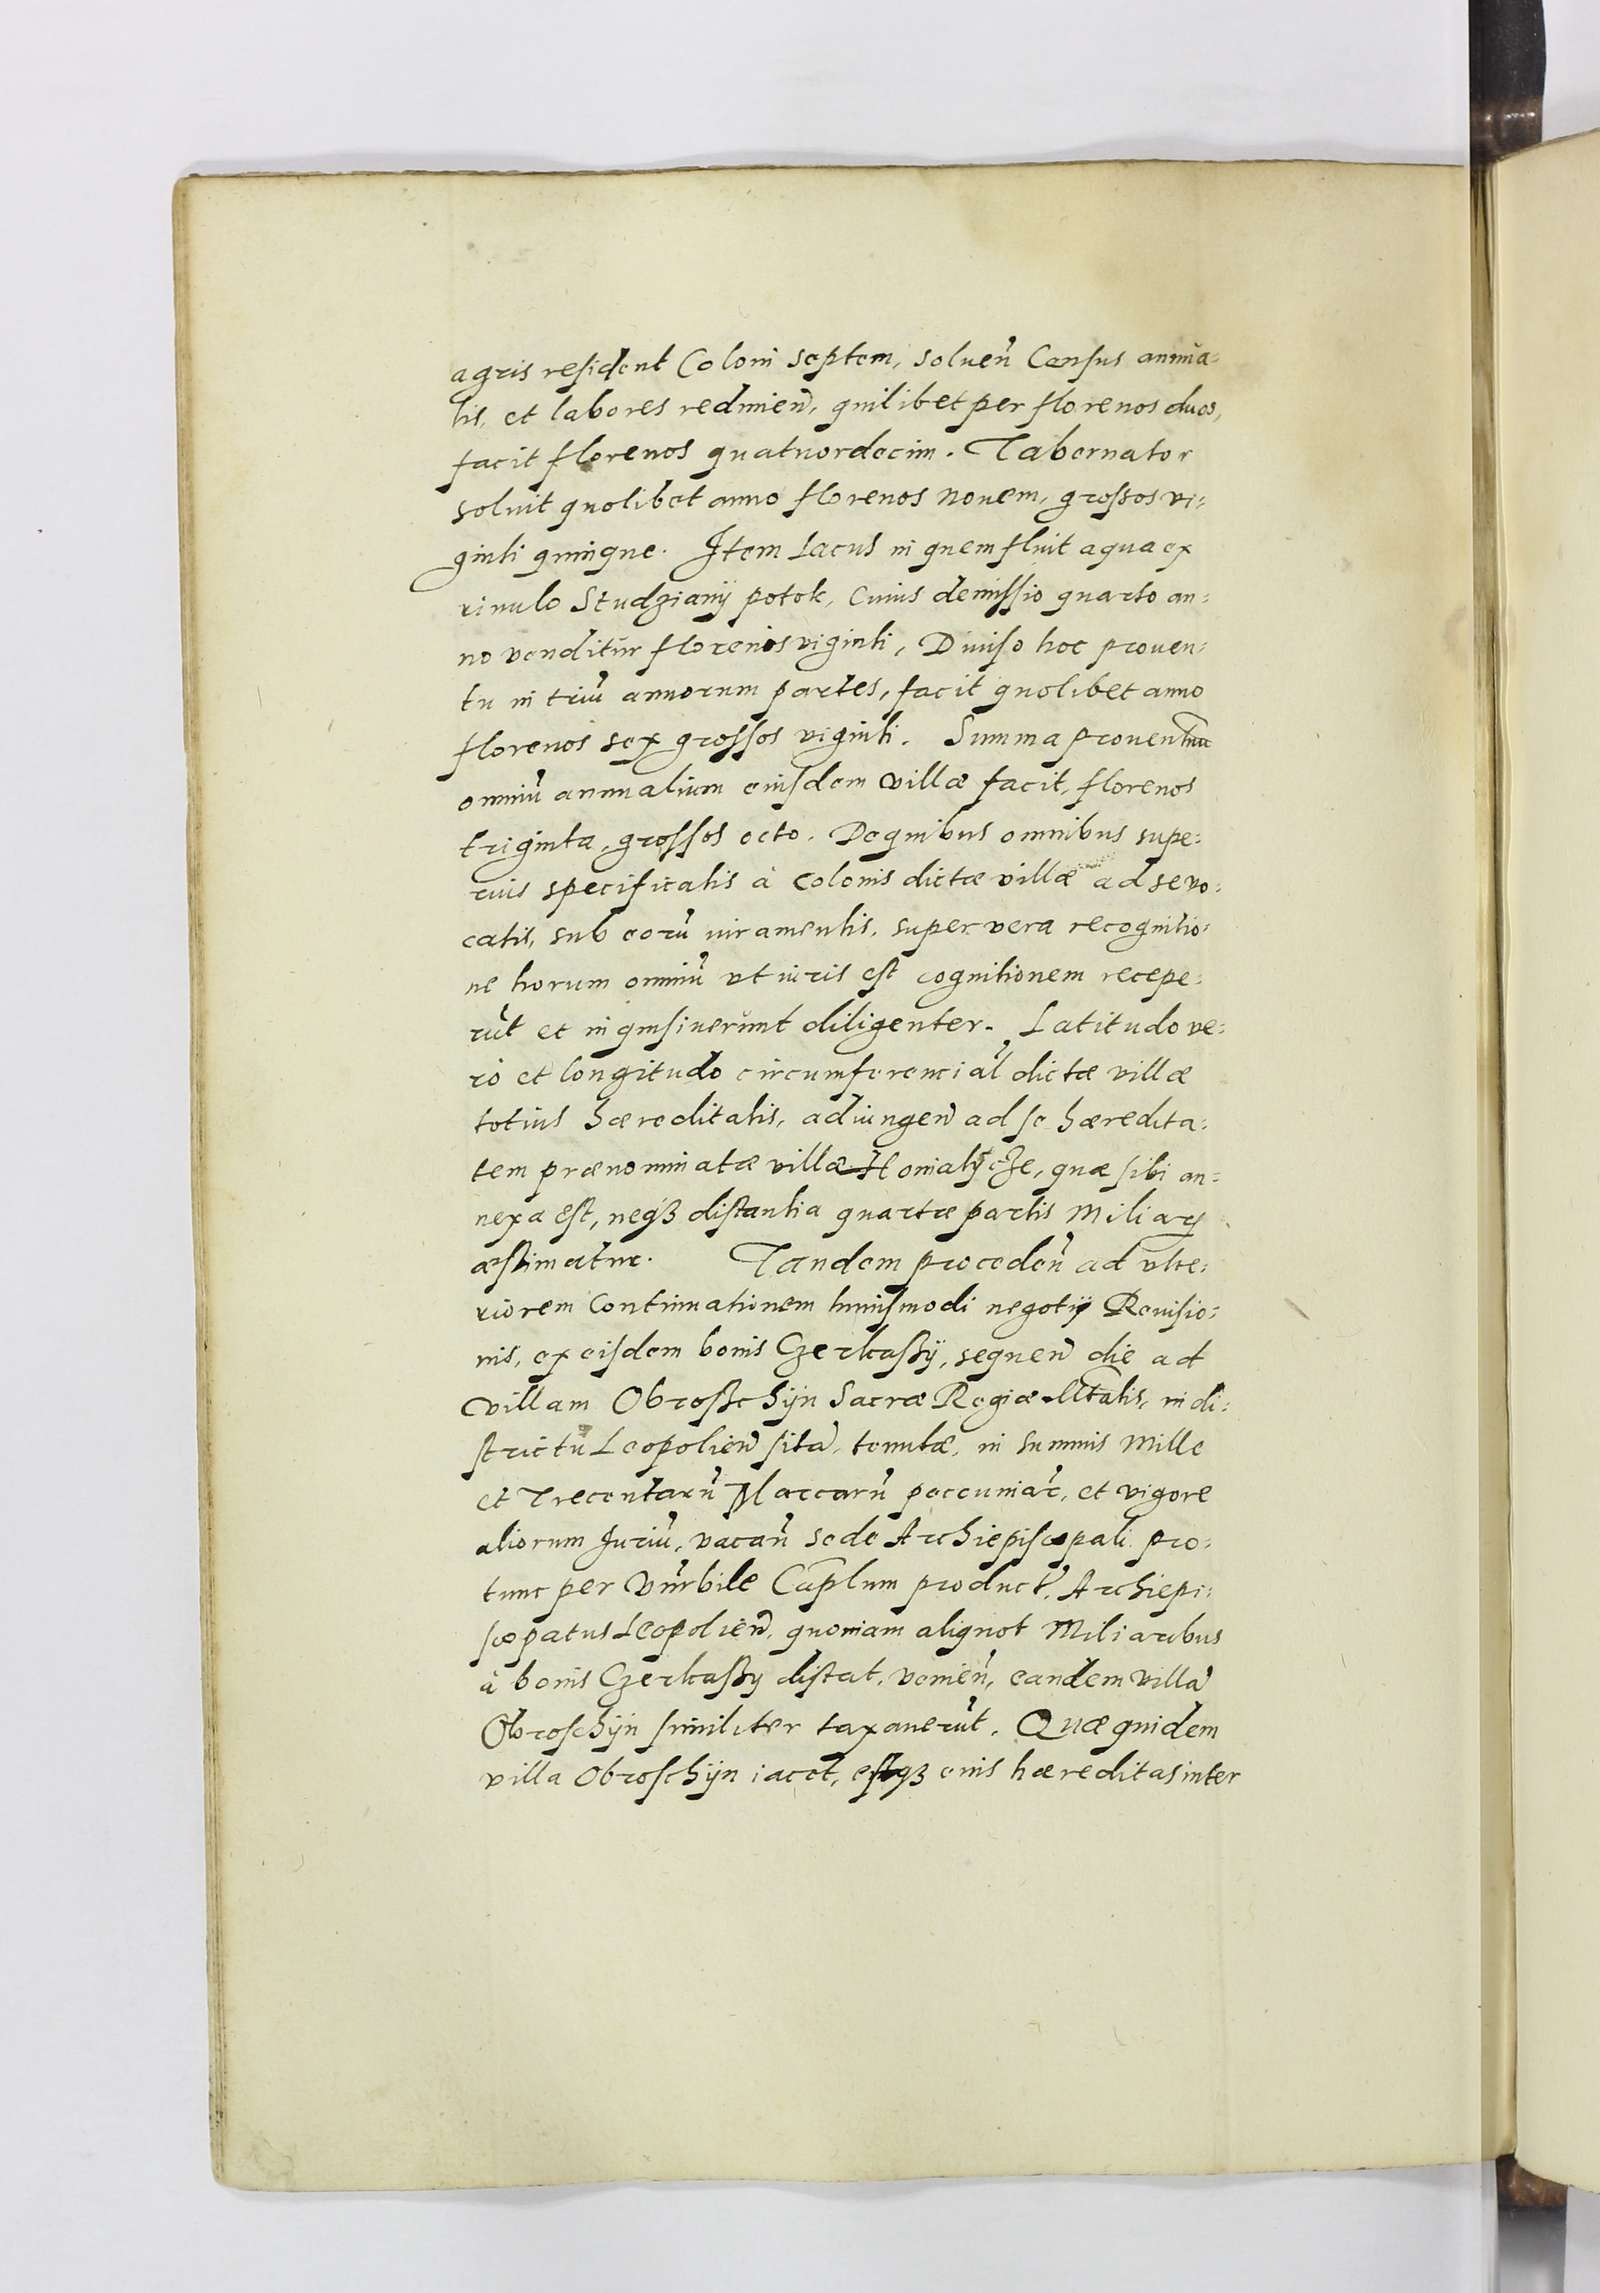 agris resident Coloni septem, soluen̄ Census annua-
lis, et labores redimien̄, quilibet per florenos duos,
facit florenos quatuordecim. Tabernator
soluit quolibet anno florenos nouem, grossos vi-
ginti quinque. Item Lacus in quem fluit aqua ex
riuulo Studzianÿ potok, cuius demissio quarto an-
no venditur florenos viginti, Diuiso hoc prouen-
tu in triū annorum partes, facit quolibet anno
florenos sex grossos viginti. Summa prouentuū
omniū annualium eiusdem villæ facit, florenos
triginta, grossos octo. De quibus omnibus supe-
rius specificatis à colonis dictæ villæ ad se vo-
catis, sub eorū iuramentis, super vera recognitio-
ne horum omniū vt iuris est cognitionem recepe-
rūt et inquisiuerunt diligenter. Latitudo ve-
rò et longitudo circumferencial̄ dictæ villæ
totius hæreditatis, adiungen̄ ad se hæredita-
tem prænominatæ villæ Honialÿcze, quæ sibi an-
nexa est, neqꝫ distantia quartæ partis Miliarÿ
æstimatur. Tandem proceden̄ ad vlte-
riorem Continuationem huiusmodi negotÿ Reuisio-
nis, ex eisdem bonis Czerkassÿ, sequen̄ die ad
villam Obrosschÿn Sacræ Regiæ Mtatis, in di-
strictu Leopolien̄ sitā, tenutæ, in summis Mille
et Trecentarū Marcarū peccuniar̄, et vigore
aliorum Juriū, vacan̄ sede Archiepiscopali pro-
tunc per Vn̄rbile Cap̄lum product̄, Archiepi-
scopatus Leopolien̄, quoniam aliquot Miliaribus
à bonis Czerkassy distat, venien̄, eandem villā
Obroschÿn similiter taxauerūt. Quæ quidem
villa Obroschÿn iacet, estqꝫ eius hæreditas inter